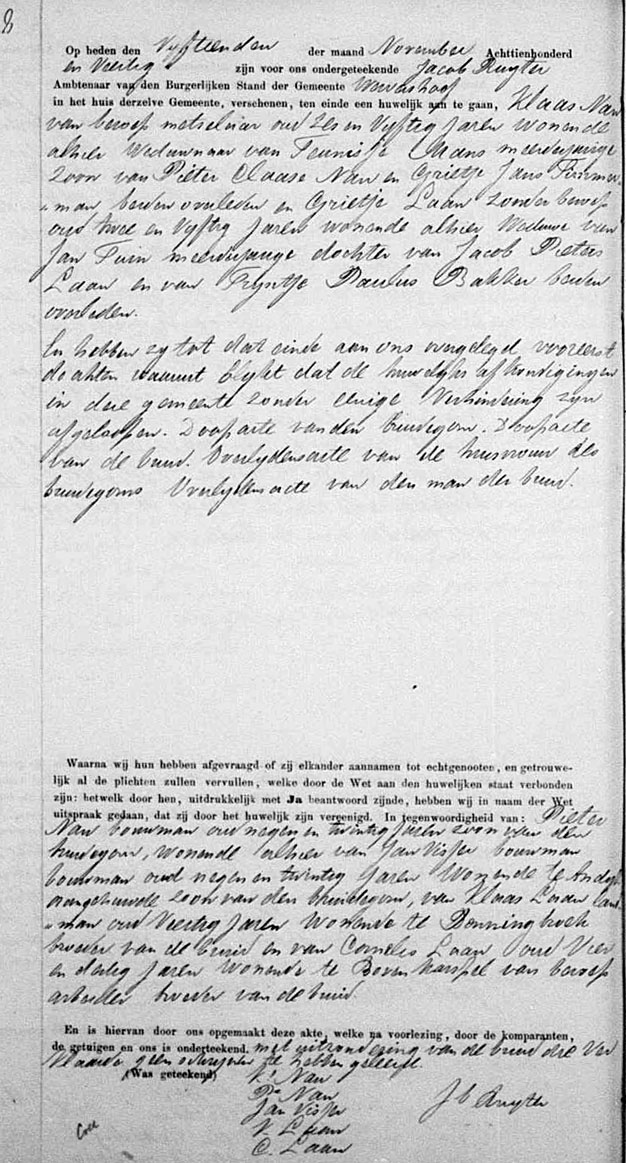 8
Op heden den Vyftienden der maand November Achttienhonderd
en Veertig zijn voor ons ondergeteekende Jacob Ruyter
Ambtenaar van den Burgerlijken Stand der Gemeente Wervershoof
in het huis derzelve Gemeente, verschenen, ten einde een huwelijk aan te gaan, Klaas Nan
van beroep metselaar oud zes en Vyftig Jaren wonende
alhier Weduwnaar van Teunisje Mans meerderjarige
zoon van Pieter Claase Nan en Grietje Jans Timmer-
"man beiden overleden en Grietje Laan zonder beroep
oud twee en Vyftig Jaren wonende alhier Weduwe van
Jan Tuin meerderjarige dochter van Jacob Pieters
Laan en van Tryntje Paulus Bakker beiden
overleden.
En hebben zy tot dat einde aan ons overgelegd vooreerst
de akten waaruit blykt dat de huwelyks afkondigingen
in deze gemeente zonder eenige Verhindering zyn
afgeloopen. Doopacte van den bruidegom. Doopacte
van de bruid. Overlydensacte van de huisvrouw des
bruidegoms Overlydensacte van den man der bruid.
Waarna wij hun hebben afgevraagd of zij elkander aannamen tot echtgenooten, en getrouwe-
lijk al de plichten zullen vervullen, welke door de Wet aan den huwelijken staat verbonden
zijn: hetwelk door hen, uitdrukkelijk met Ja beantwoord zijnde, hebben wij in naam der Wet
uitspraak gedaan, dat zij door het huwelijk zijn vereenigd. In tegenwoordigheid van: Pieter
Nan bouwman oud negen en twintig Jaren zoon van den
bruidegom, wonende alhier van Jan Visser bouwman
bouwman oud negen en twintig Jaren Wonende te Andyk
aangehuwde zoon van den bruidegom, van Klaas Laan land-
"man oud Veertig Jaren wonende te Benningbroek
broeder van de bruid en van Cornelis Laan oud Vier
en dertig Jaren wonende te Bovenkarspel van beroep
arbeider broeder van de bruid
En is hiervan door ons opgemaakt deze akte, welke na voorlezing, door de komparanten,
de getuigen en ons is onderteekend. met uitzondering van de bruid die Ver
klaarde geen schryven te hebben geleerd.
(Was geteekend) K. Nan
Pr Nan
Jan Visser
K. Laan
C. Laan
J Ruyter